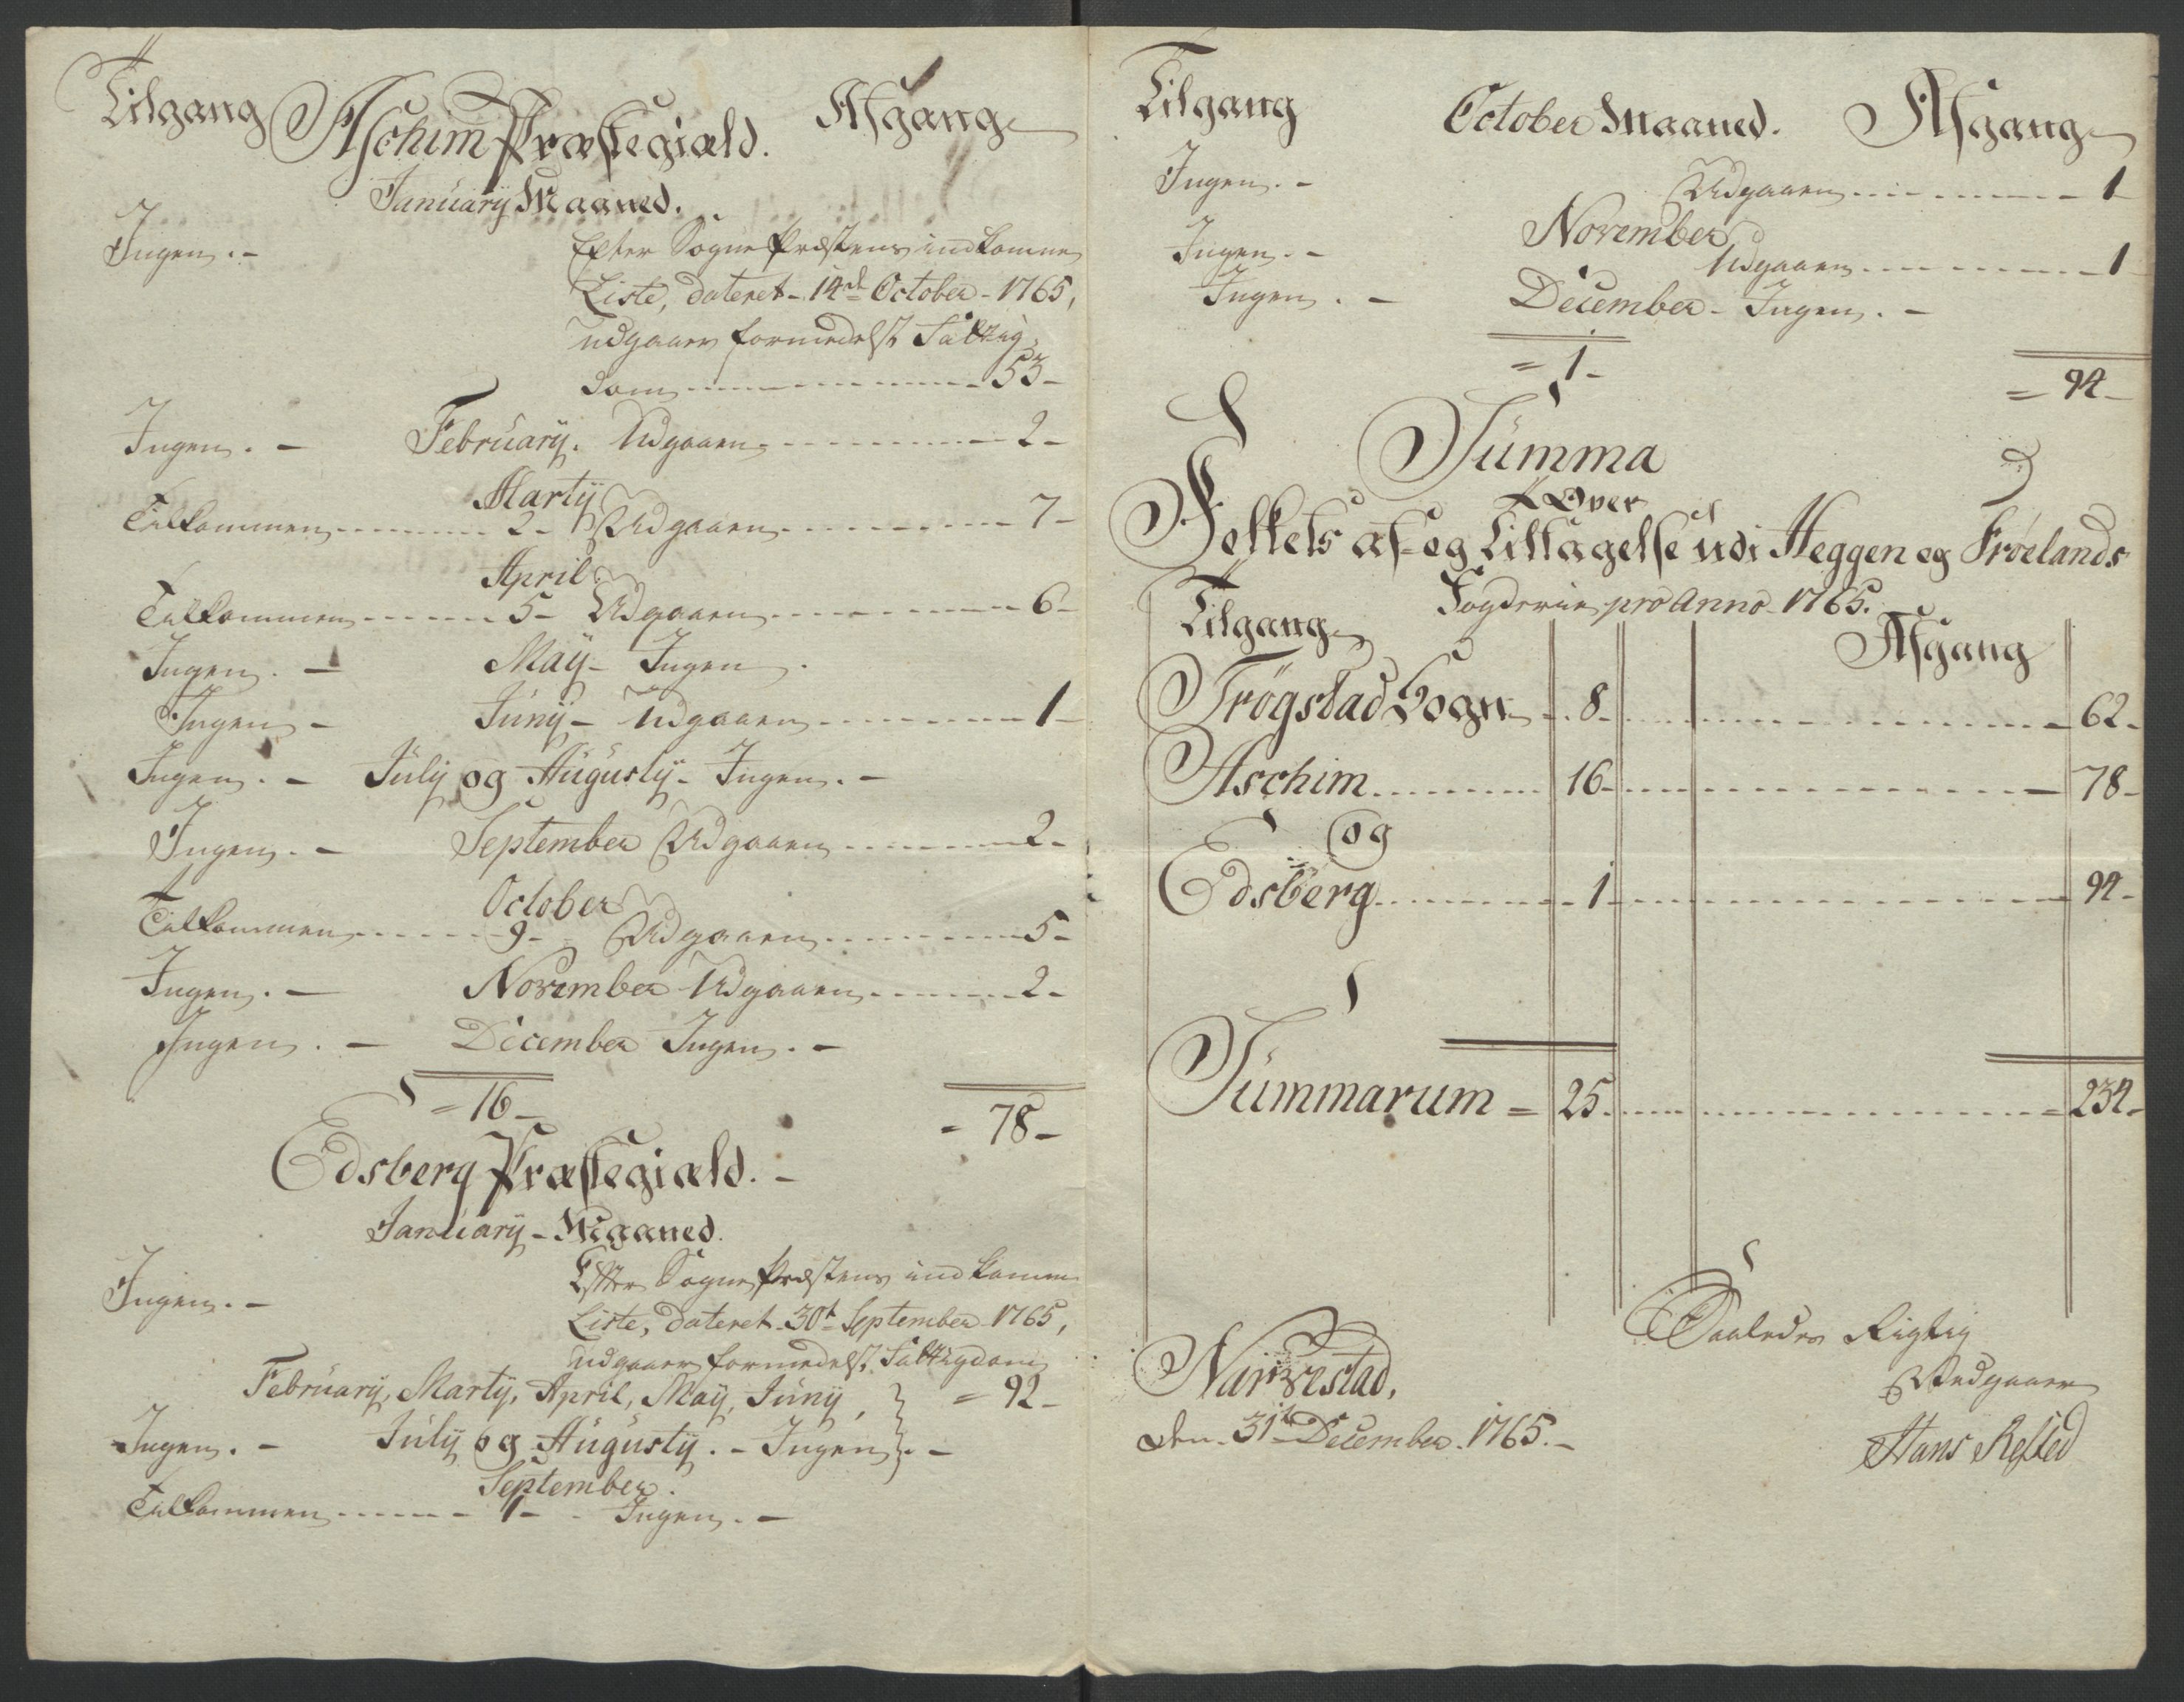 Tilgang Aschim Præstegiæld. Afgang
January Maaned.
Ingen. - Efter Sogne Præstens indkomne
Liste, dateret - 14de October - 1765,
udgaaer formedelst Fattig-
dom - 53 -
Ingen. - February. Udgaaen - 2 -
Marty
Tilkommen - 2 - Udgaaen - 7 -
April
Tilkommen - 5 - Udgaaen - 6 -
Ingen. - May - Ingen.
Ingen - Juny - Udgaaen - 1 -
Ingen. - July og Augusty - Ingen. -
Ingen. - September Udgaaen - 2 -
October
Tilkommen - 9 - Udgaaen - 5 -
Ingen. - November Udgaaen - 2 -
Ingen. - December Ingen. -
= 16 -
= 78 -
Edsberg Præstegiæld. -
January - Maaned.
Ingen. - Efter Sogne Præstens indkomne
Liste, dateret 30t September 1765,
udgaaer formedelst Fattigdom
= 92 -
February, Marty, April, May, Juny,
Ingen. - July og Augusty. - Ingen. -
September.
Tilkommen - 1 - Ingen. -
Tilgang October Maaned. Afgang
Ingen. - Udgaaen - 1
November
Ingen. - Udgaaen - 1
Ingen. - December - Ingen. -
= 1 -
= 94 -
Summa
Over
Folkets af- og Tiltagelse udi Heggen og Frøelands
Fogderie pro Anno 1765.
Tilgang Afgang
Trøgstad Sogn - 8 - 62 -
Aschim - 16 - 78 -
og
Edsberg - 1 - 94 -
Summarum = 25 - = 234 -
Saaledes Rigtig
Vedgaaer
Narvestad,
den 31t December 1765. -
Hans Rested